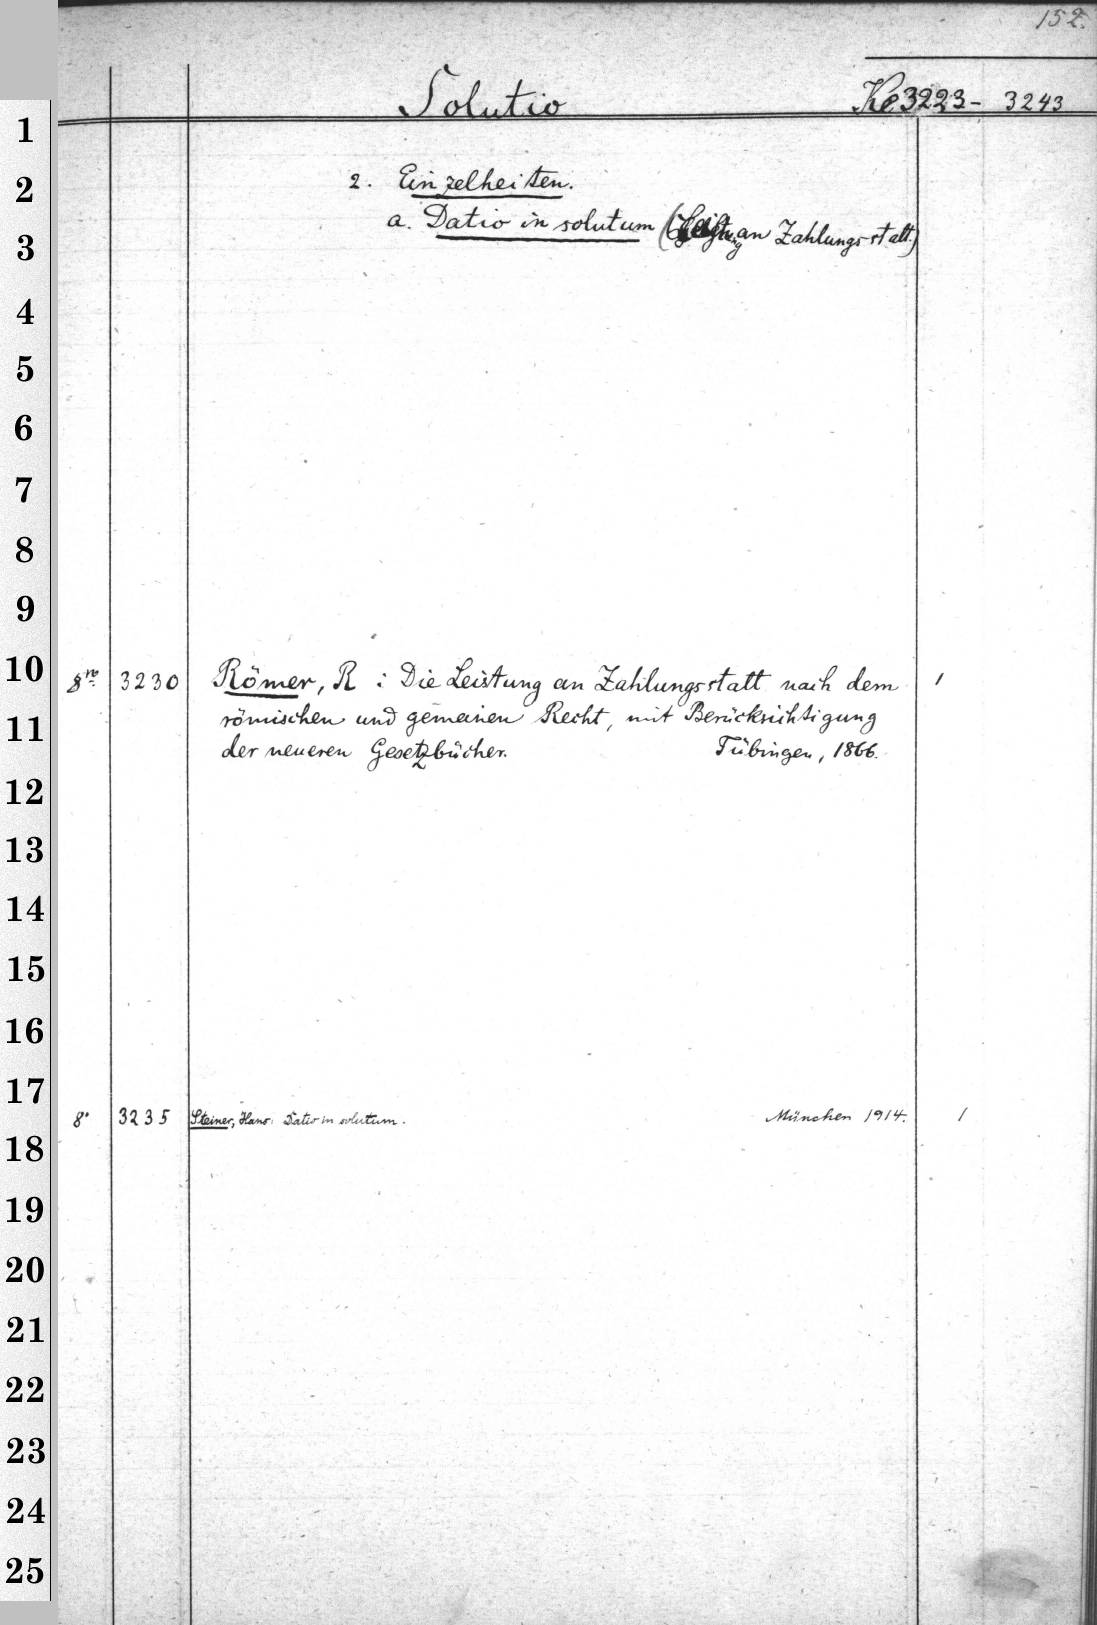 152.
Solutio Ke 3223 - 3243
1
2 2. Einzelheiten.
3 a. Datio in solutum (Leistung an Zahlungsstatt.)
4
5
6
7
8
9
10 8vo 3230 Römer, R : Die Leistung an Zahlungsstatt nach dem 1
11 römischen und gemeinen Recht, mit Berücksichtigung
der neueren Gesetzbücher. Tübingen, 1866.
12
13
14
15
16
17 8° 3235 Steiner, Hans: Datio in solutum. München 1914. 1
18
19
20
21
22
23
24
25